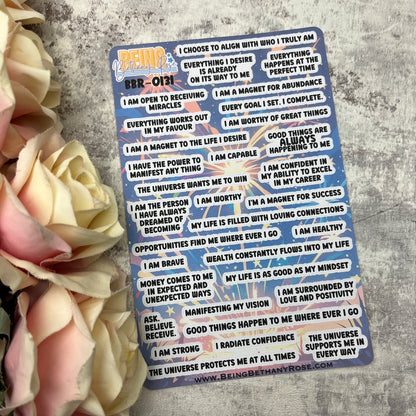 BEING
BBR-0131
I CHOOSE TO ALIGN WITH WHO I TRULY AM
EVERYTHING I DESIRE
IS ALREADY
ON ITS WAY TO ME
EVERYTHING
HAPPENS AT THE
PERFECT TIME
I AM OPEN TO RECEIVING
MIRACLES
I AM A MAGNET FOR ABUNDANCE
EVERY GOAL I SET, I COMPLETE.
EVERYTHING WORKS OUT
IN MY FAVOUR
I AM WORTHY OF GREAT THINGS
I AM A MAGNET TO THE LIFE I DESIRE
GOOD THINGS ARE
ALWAYS
HAPPENING TO ME
I HAVE THE POWER TO
MANIFEST ANY THING
I AM CAPABLE
I AM CONFIDENT IN
MY ABILITY TO EXCEL
IN MY CAREER
THE UNIVERSE WANTS ME TO WIN
I AM THE PERSON
I HAVE ALWAYS
DREAMED OF
BECOMING
I AM WORTHY
I'M A MAGNET FOR SUCCESS
MY LIFE IS FILLED WITH LOVING CONNECTIONS
OPPORTUNITIES FIND ME WHERE EVER I GO
I AM HEALTHY
I AM BRAVE
WEALTH CONSTANTLY FLOWS INTO MY LIFE
MONEY COMES TO ME
IN EXPECTED AND
UNEXPECTED WAYS
MY LIFE IS AS GOOD AS MY MINDSET
I AM SURROUNDED BY
LOVE AND POSITIVITY
ASK.
BELIEVE.
RECEIVE.
MANIFESTING MY VISION
GOOD THINGS HAPPEN TO ME WHERE EVER I GO
I AM STRONG
I RADIATE CONFIDENCE
THE UNIVERSE
SUPPORTS ME IN
EVERY WAY
THE UNIVERSE PROTECTS ME AT ALL TIMES
WWW.BEINGBETHANYROSE.COM